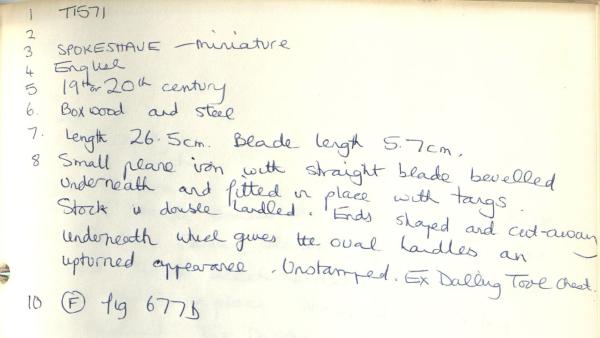 1 T1571
2
3 SPOKESHAVE - miniature
4 English
5 19th or 20th century
6. Boxwood and steel
7. Length 26.5cm. Blade length 5.7cm.
8 Small plane iron with straight blade bevelled
underneath and fitted in place with tangs.
Stock is double handled. Ends shaped and cut-away
underneath which gives the oval handles an
upturned appearance. Unstamped. Ex Dalling Tool Chest.
10 (F) fig 677b